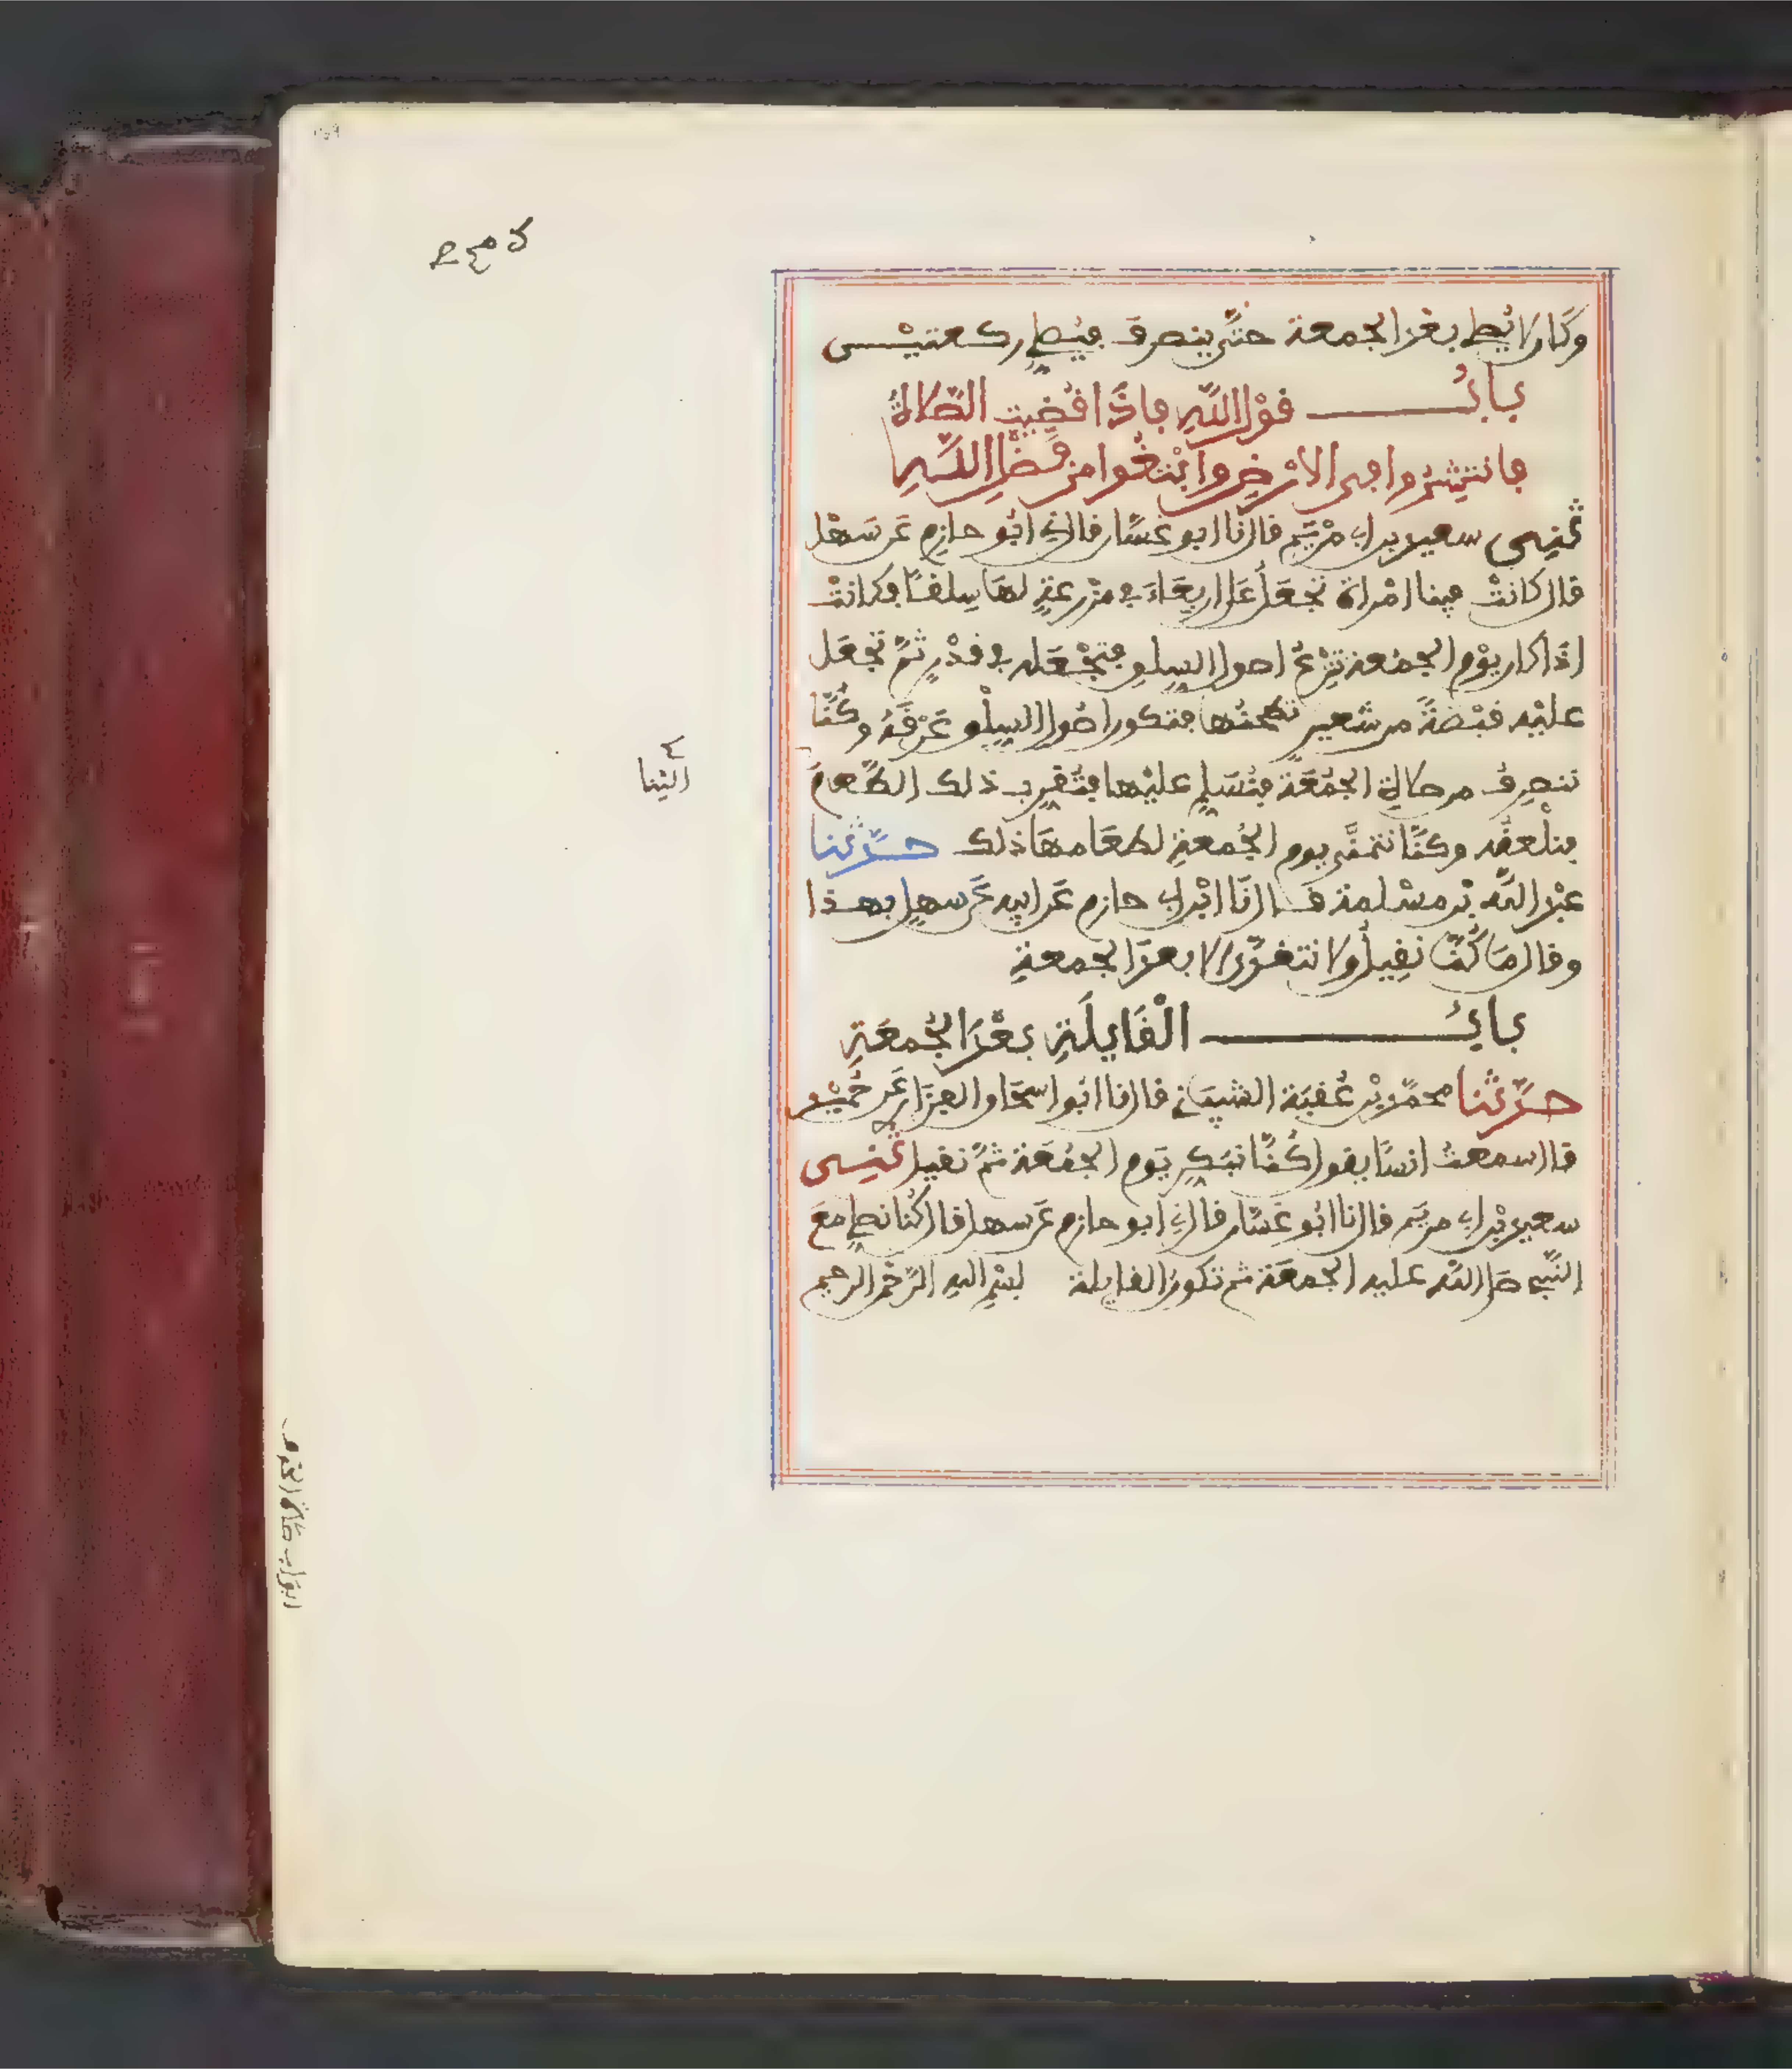 وكان لا يصلي بعد الجمعة حتى ينصرف فيصلي ركعتين
باب قول الله فاذا قضيت الصلاة
فانتشروا في الارض وابتغوا من فضل الله
ثني سعيد بن ابي مريم قال نا ابو غسان قال ني ابو حازم عن سهل
قال كانت فينا امراة تجعل على اربعاء في مزرعة لها سلقا وكانت
اذا كان يوم الجمعة تنزع اصول السلق فتجعله في قدر ثم تجعل
عليه قبضة من شعير تطحنها فتكون اصول السلق عرقه وكنا
ننصرف من صلاة الجمعة فنسلم عليها فتقرب ذلك الطعام
الينا
فنلعقه وكنا نتمنى يوم الجمعة لطعامها ذلك حدثنا
عبد الله بن مسلمة قال نا ابن ابي حازم عن ابيه عن سهل بهذا
وقال ما كنا نقيل ولا نتغدى الا بعد الجمعة
باب القايلة بعد الجمعة
حدثنا محمد بن عقبة الشيباني قال نا ابو اسحاق الفزاري عن حميد
قال سمعت انسا يقول كنا نبكر يوم الجمعة ثم نقيل ثني
سعيد بن ابي مريم قال نا ابو غسان قال ني ابو حازم عن سهل قال كنا نصلي مع
النبي صلى الله عليه الجمعة ثم تكون القايلة بسم الله الرحمن الرحيم
ابواب صلاة الخوف